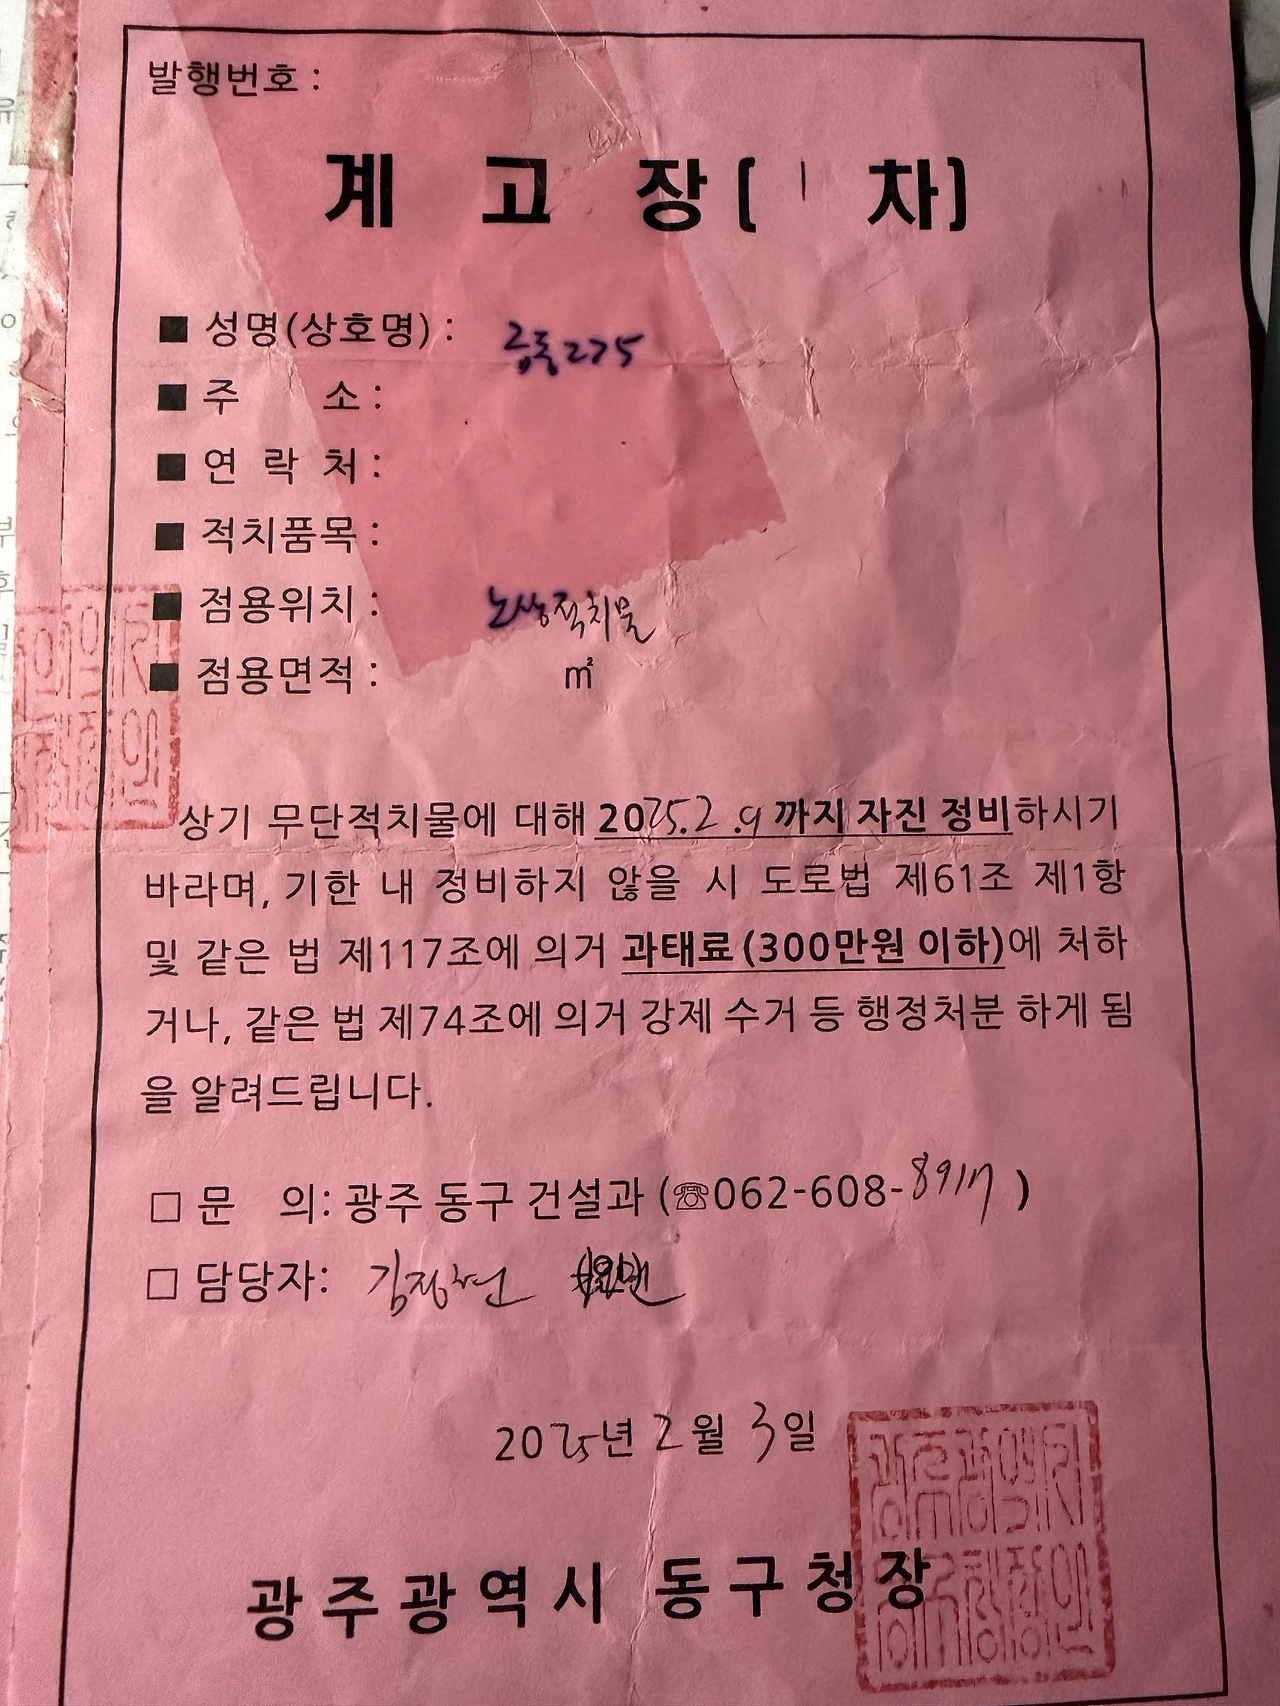 발행번호 :
계 고 장( 1 차)
■ 성명(상호명) : 금동225
■ 주 소 :
■ 연 락 처 :
■ 적치품목 :
■ 점용위치 : 노상적치물
■ 점용면적 : ㎡
상기 무단적치물에 대해 2025.2.9 까지 자진 정비하시기
바라며, 기한 내 정비하지 않을 시 도로법 제61조 제1항
및 같은 법 제117조에 의거 과태료(300만원 이하)에 처하
거나, 같은 법 제74조에 의거 강제 수거 등 행정처분 하게 됨
을 알려드립니다.
□ 문 의: 광주 동구 건설과 (☏062-608-8917)
□ 담당자:
2025년 2월 3일
광주광역시 동구청장